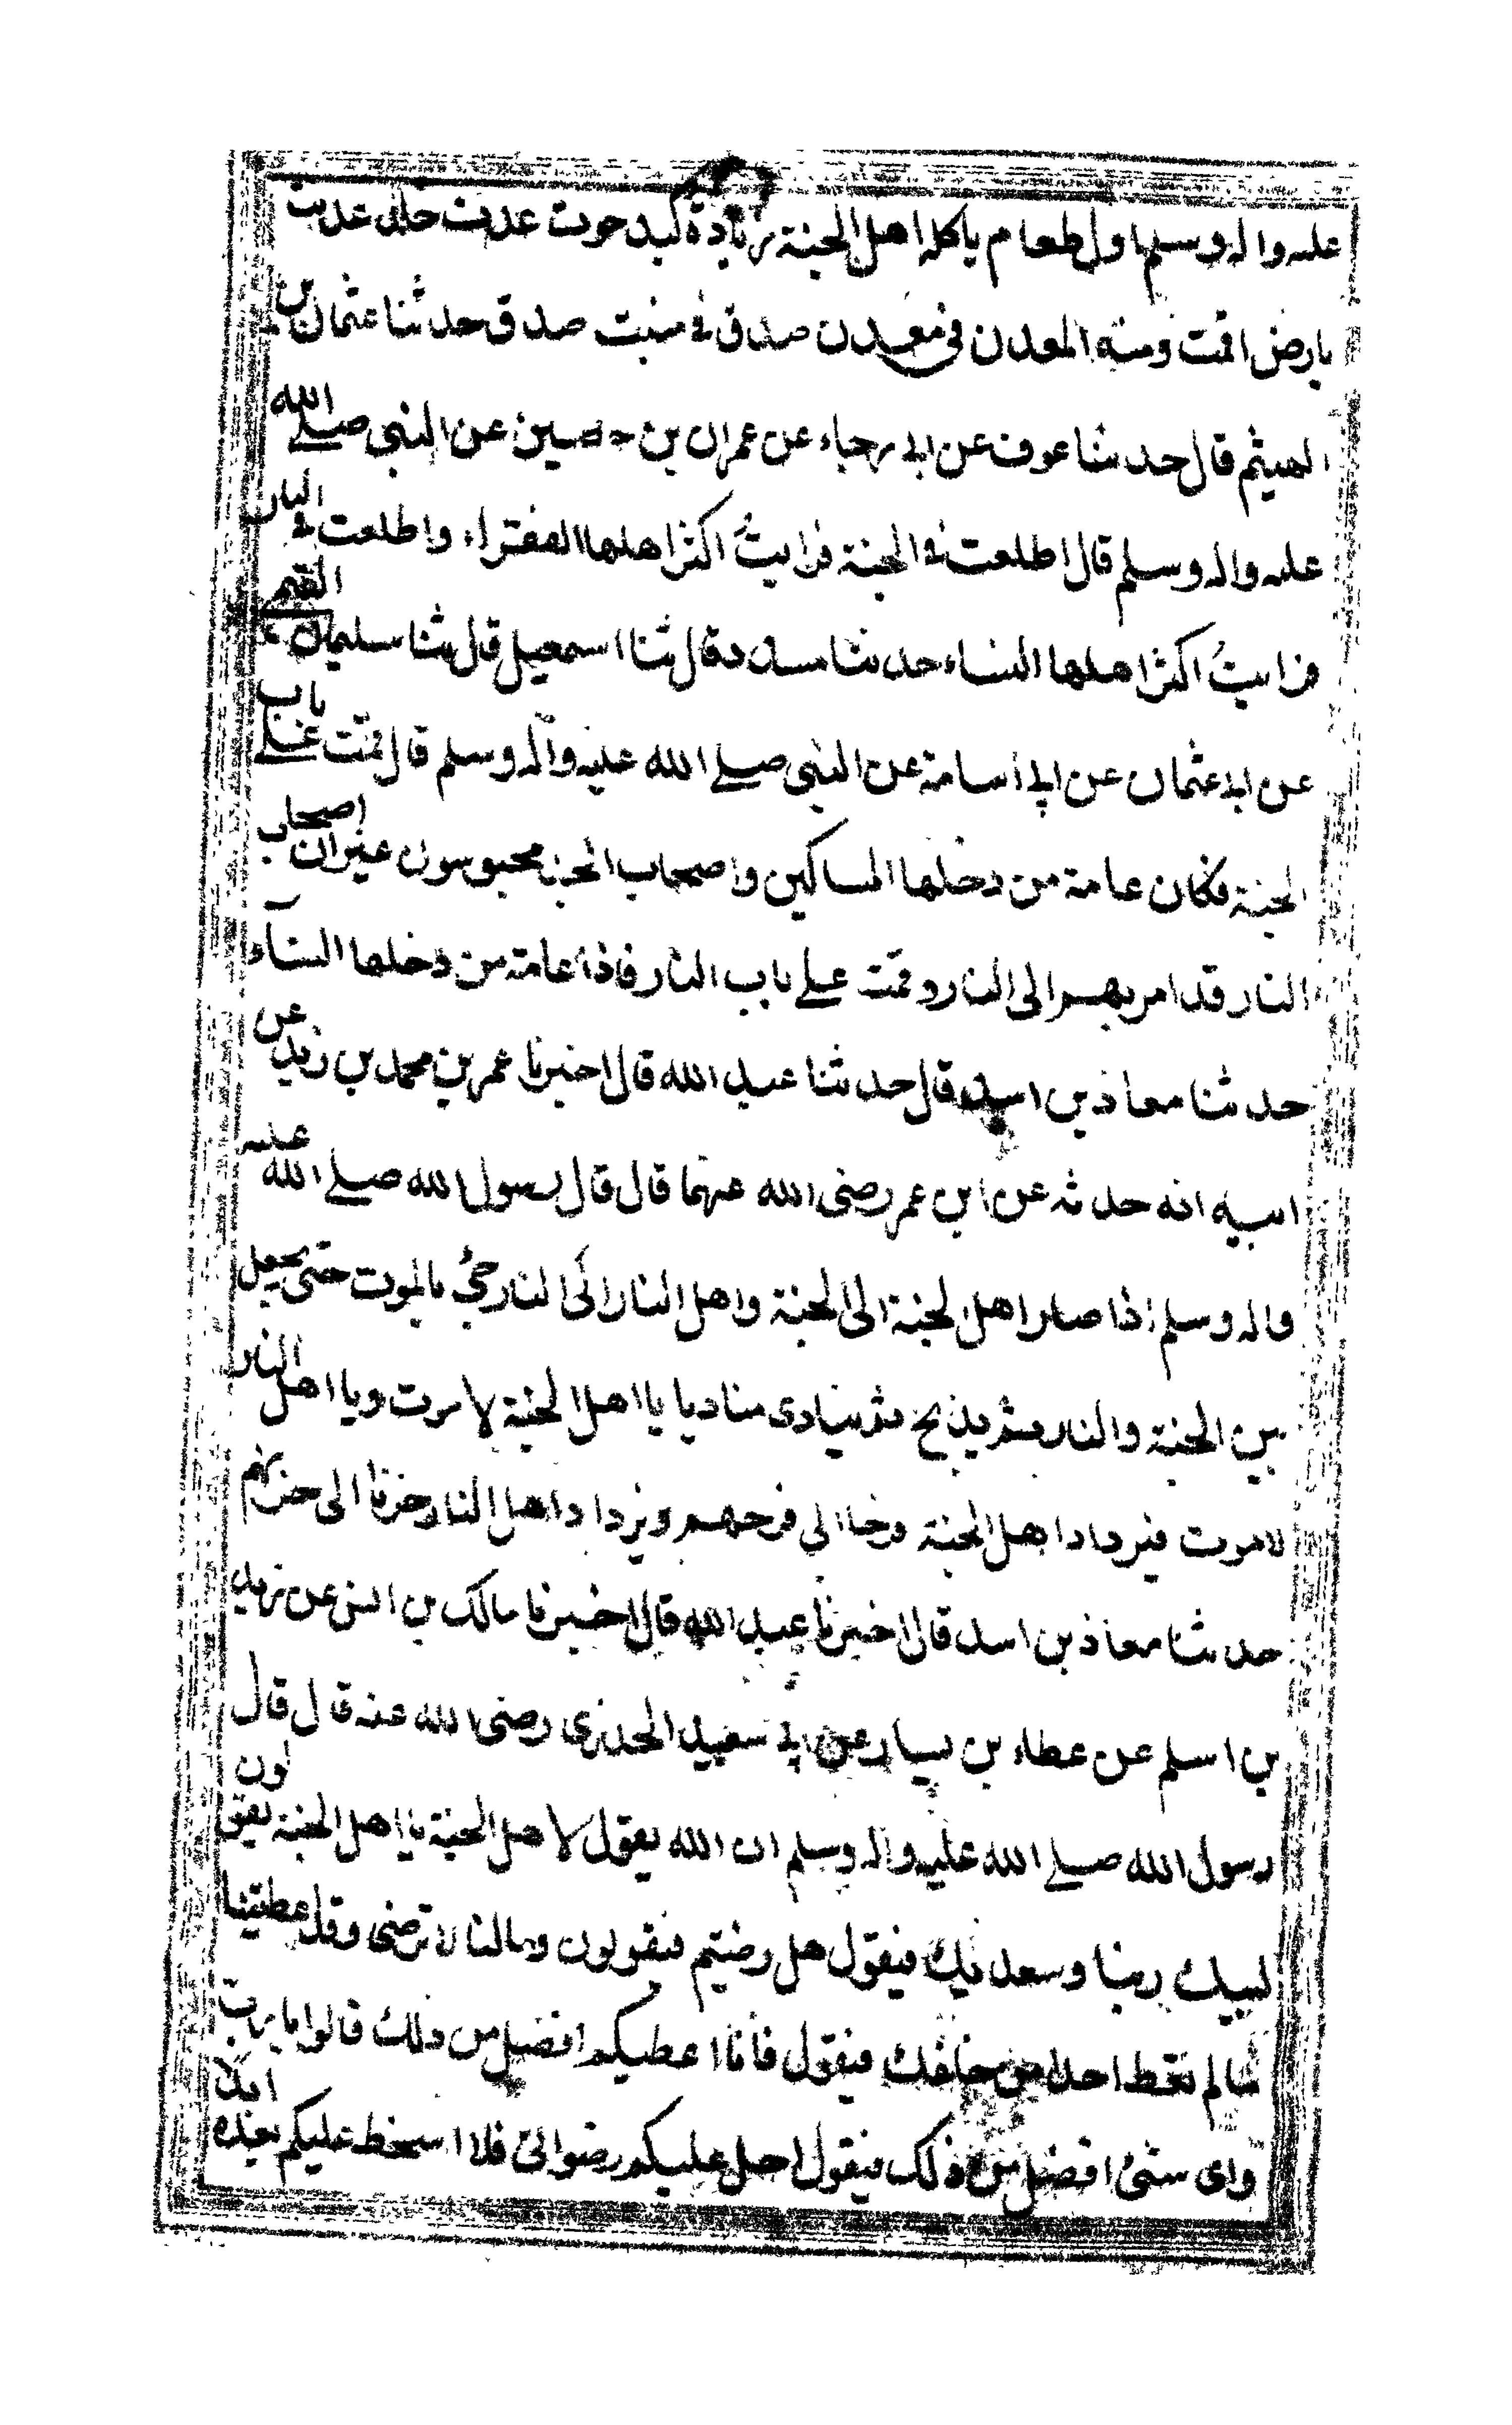 عليه واله وسلم اول طعام ياكله اهل الجنة زيادة كبد حوت عدن خلد عدنت
بارض اقمت ومنه المعدن في معدن صدق في منبت صدق حدثنا عثمان بن
الهيثم قال حدثنا عوف عن ابي رجاء عن عمران بن حصين عن النبي صلى الله
عليه واله وسلم قال اطلعت في الجنة فرايت اكثر اهلها الفقراء واطلعت في النار
فرايت اكثر اهلها النساء حدثنا مسدد قال ثنا اسمعيل قال ثنا سليمان التيمي
عن ابي عثمان عن ابي اسامة عن النبي صلى الله عليه واله وسلم قال قمت على باب
الجنة فكان عامة من دخلها المساكين واصحاب الجد محبوسون غير ان اصحاب
النار قد امر بهم الى النار وقمت على باب النار فاذا عامة من دخلها النسآء
حدثنا معاذ بن اسد قال حدثنا عبد الله قال اخبرنا عمر بن محمد بن زيد عن
ابيه انه حدثه عن ابن عمر رضى الله عنهما قال قال رسول الله صلى الله عليه
واله وسلم اذا صار اهل الجنة الى الجنة واهل النار الى النار جئ بالموت حتى يجعل
بين الجنة والنار ثم يذبح ثم ينادى مناديا يا اهل الجنة لا موت ويا اهل النار
لا موت فيزداد اهل الجنة فرحا الي فرحهم ويزداد اهل النار حزنا الى حزنهم
حدثنا معاذ بن اسد قال اخبرنا عبد الله قال اخبرنا مالك بن انس عن زيد
بن اسلم عن عطاء بن يسار عن ابي سعيد الخدري رضى الله عنه قال قال
رسول الله صلى الله عليه واله وسلم ان الله يقول لاهل الجنة يا اهل الجنة يقولون
لبيك ربنا وسعديك فيقول هل رضيتم فيقولون ومالنا لا نرضى وقد اعطيتنا
مالم تعط احدا من خلقك فيقول فانا اعطيكم افضل من ذلك قالوا يا رب
واى شئ افضل من ذلك فيقول احل عليكم رضواني فلا اسخط عليكم بعده ابدا